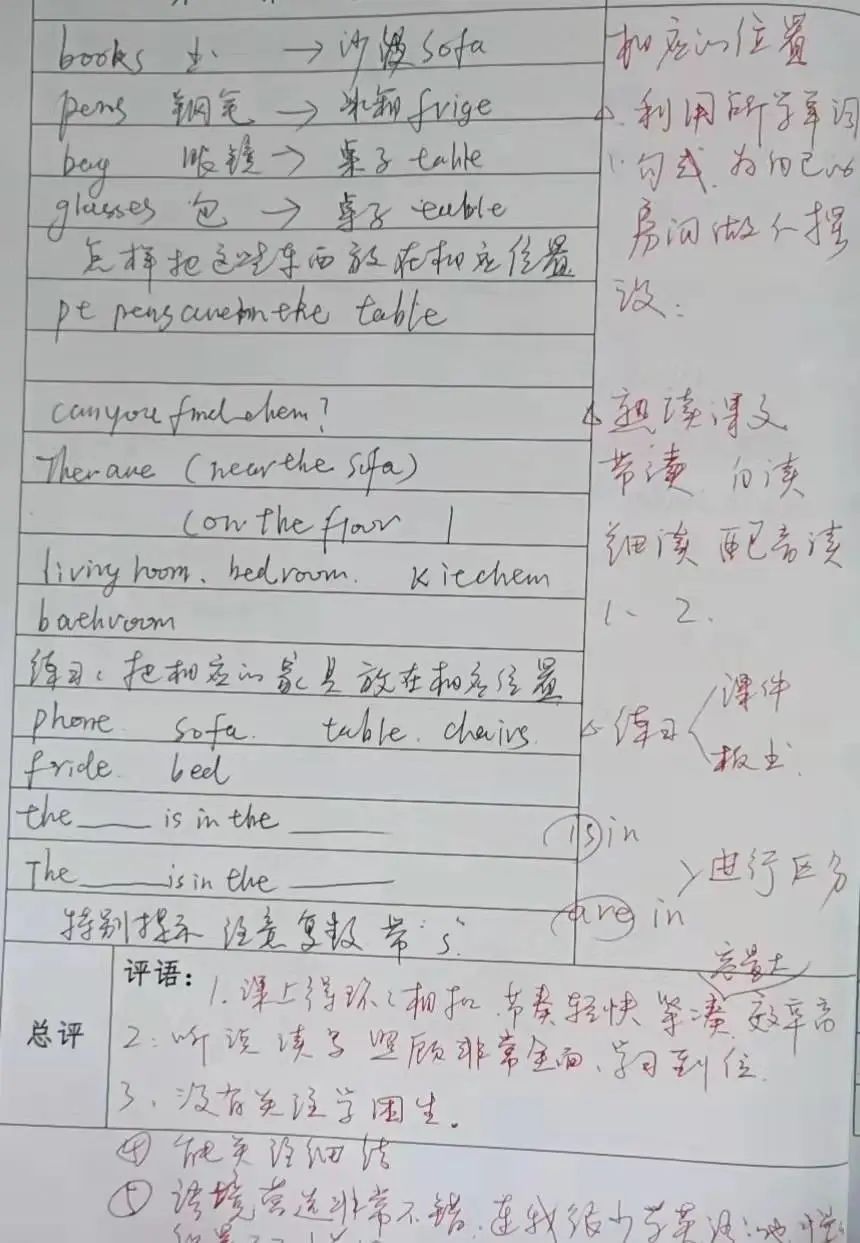 books 书 → 沙发 sofa
pens 钢笔 → 冰箱 frige
bag 眼镜 → 桌子 table
glasses 包 → 桌子 table
怎样把这些东西放在相应位置
pt pens are in the table
can you find them?
Ther are (near the sofa)
(on the floor )
living room、bedroom. kitchem
bathroom
练习:把相应的家具放在相应位置
phone sofa. table. chairs.
fride. bed
the ____ is in the ____
The ____ is in the ____
特别提示 注意复数 带 's'
相应的位置
△. 利用所学单词
句式, 为自己的
房间做个摆
设:
△ 熟读课文
带读 自读
细读 配音读
1、2.
△ 练习 课件
板书
is in
进行区分
are in
总评
评语:
1. 课上得环环相扣 节奏轻快 紧凑 效率高
容量大
2. 听说读写照顾非常全面、学习到位
3、没有关注学困生。
④ 能关注细结
⑤ 语境营造非常不错,连我很少学英语